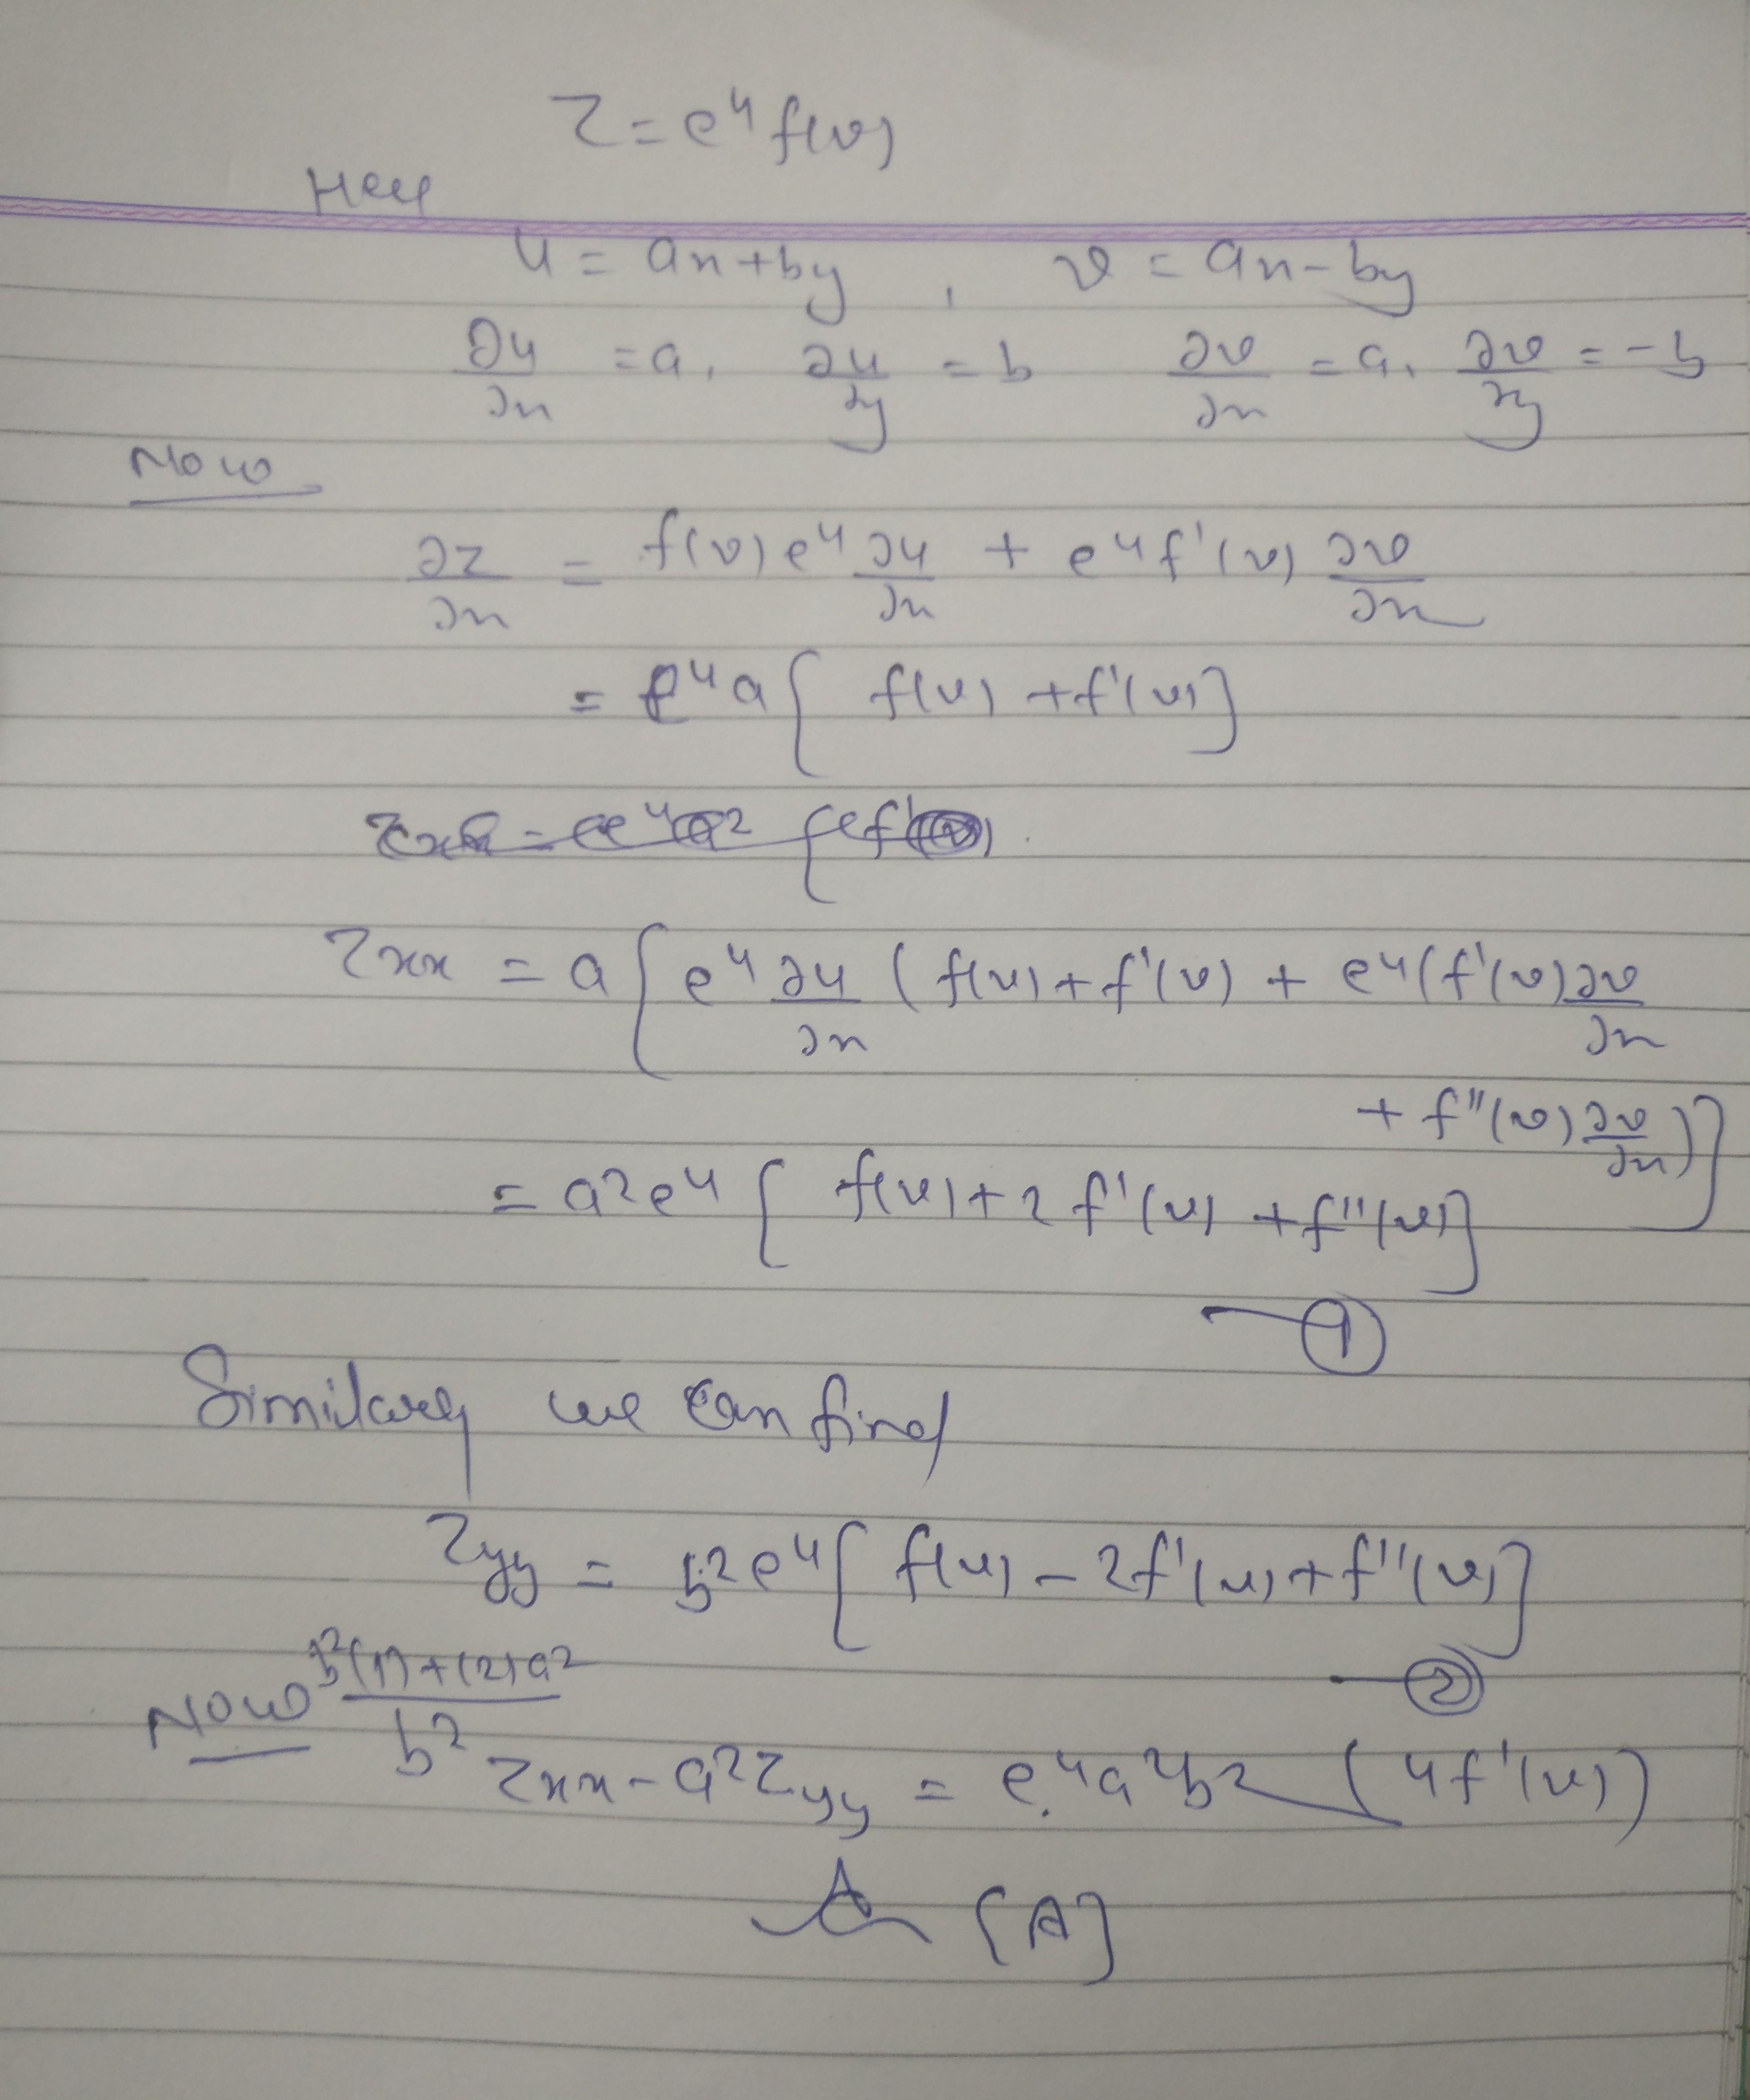 z = e^u f(v)
Here
u = ax+by , v = ax-by
∂u/∂x = a, ∂u/∂y = b ∂v/∂x = a, ∂v/∂y = -b
Now
∂z/∂x = f(v) e^u ∂u/∂x + e^u f'(v) ∂v/∂x
= e^u a [ f(v) + f'(v) ]
Zxx = a [ e^u ∂u/∂x ( f(v) + f'(v) + e^u ( f'(v) ∂v/∂x
+ f''(v) ∂v/∂x ) ]
= a² e^u [ f(v) + 2 f'(v) + f''(v) ]
— ①
Similarly we can find
Zyy = b² e^u [ f(v) - 2f'(v) + f''(v) ]
— ②
Now b²(1)+(2)a²
b² Zxx - a² Zyy = e^u a² b² ( 4f'(v) )
[A]